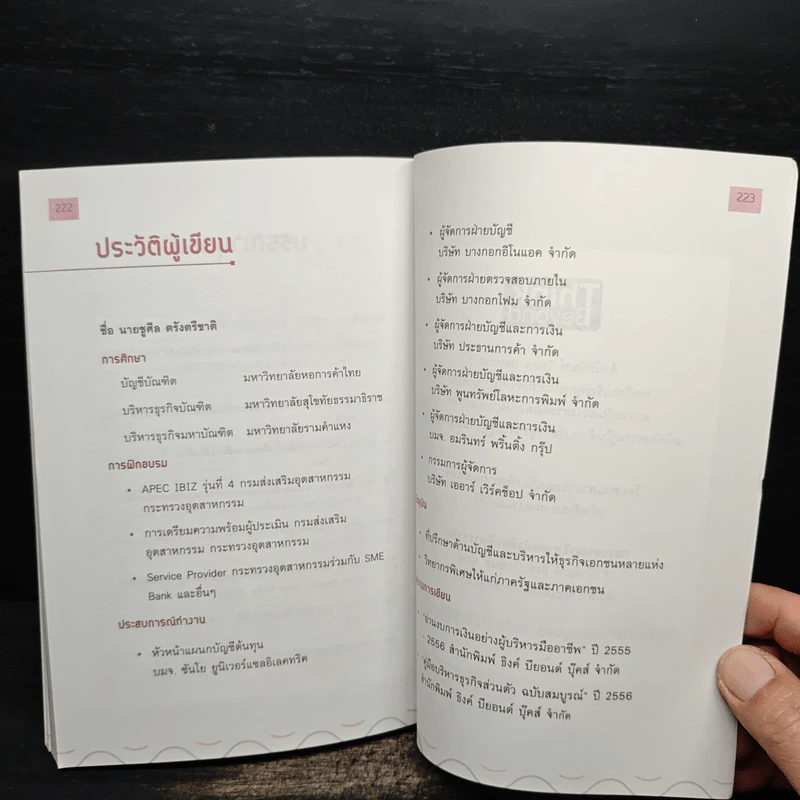 222
ประวัติผู้เขียน
ชื่อ นายชูศีล ตรังตรีชาติ
การศึกษา
บัญชีบัณฑิต มหาวิทยาลัยหอการค้าไทย
บริหารธุรกิจบัณฑิต มหาวิทยาลัยสุโขทัยธรรมาธิราช
บริหารธุรกิจมหาบัณฑิต มหาวิทยาลัยรามคำแหง
การฝึกอบรม
• APEC IBIZ รุ่นที่ 4 กรมส่งเสริมอุตสาหกรรม
กระทรวงอุตสาหกรรม
• การเตรียมความพร้อมผู้ประเมิน กรมส่งเสริม
อุตสาหกรรม กระทรวงอุตสาหกรรม
• Service Provider กระทรวงอุตสาหกรรมร่วมกับ SME
Bank และอื่นๆ
ประสบการณ์ทำงาน
• หัวหน้าแผนกบัญชีต้นทุน
บมจ. ซันโย ยูนิเวอร์แซลอิเลคทริค
223
• ผู้จัดการฝ่ายบัญชี
บริษัท บางกอกอิโนแอค จำกัด
• ผู้จัดการฝ่ายตรวจสอบภายใน
บริษัท บางกอกโฟม จำกัด
• ผู้จัดการฝ่ายบัญชีและการเงิน
บริษัท ประธานการค้า จำกัด
• ผู้จัดการฝ่ายบัญชีและการเงิน
บริษัท พูนทรัพย์โลหะการพิมพ์ จำกัด
• ผู้จัดการฝ่ายบัญชีและการเงิน
บมจ. อมรินทร์ พริ้นติ้ง กรุ๊ป
• กรรมการผู้จัดการ
บริษัท เออาร์ เวิร์คช็อป จำกัด
• ที่ปรึกษาด้านบัญชีและบริหารให้ธุรกิจเอกชนหลายแห่ง
• วิทยากรพิเศษให้แก่ภาครัฐและภาคเอกชน
งานการเขียน
• "อ่านงบการเงินอย่างผู้บริหารมืออาชีพ" ปี 2555
- 2556 สำนักพิมพ์ ธิงค์ บียอนด์ บุ๊คส์ จำกัด
• "คู่มือบริหารธุรกิจส่วนตัว ฉบับสมบูรณ์" ปี 2556
สำนักพิมพ์ ธิงค์ บียอนด์ บุ๊คส์ จำกัด